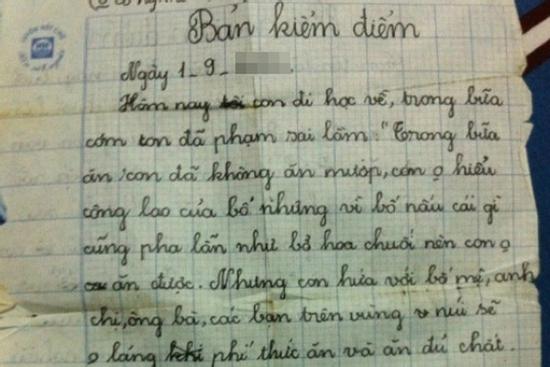 Bản kiểm điểm
Ngày 1_9_
Hôm nay tôi con đi học về, trong bữa
cơm con đã phạm sai lầm: "Trong bữa
ăn con đã không ăn mướp, con o hiểu
công lao của bố nhưng vì bố nấu cái gì
cũng pha lẫn như bở hoa chuối nên con o
ăn được. Nhưng con hứa với bố mẹ, anh
chị, ông bà, các bạn trên vùng v núi sẽ
o láng khi phí thức ăn và ăn đủ chất.